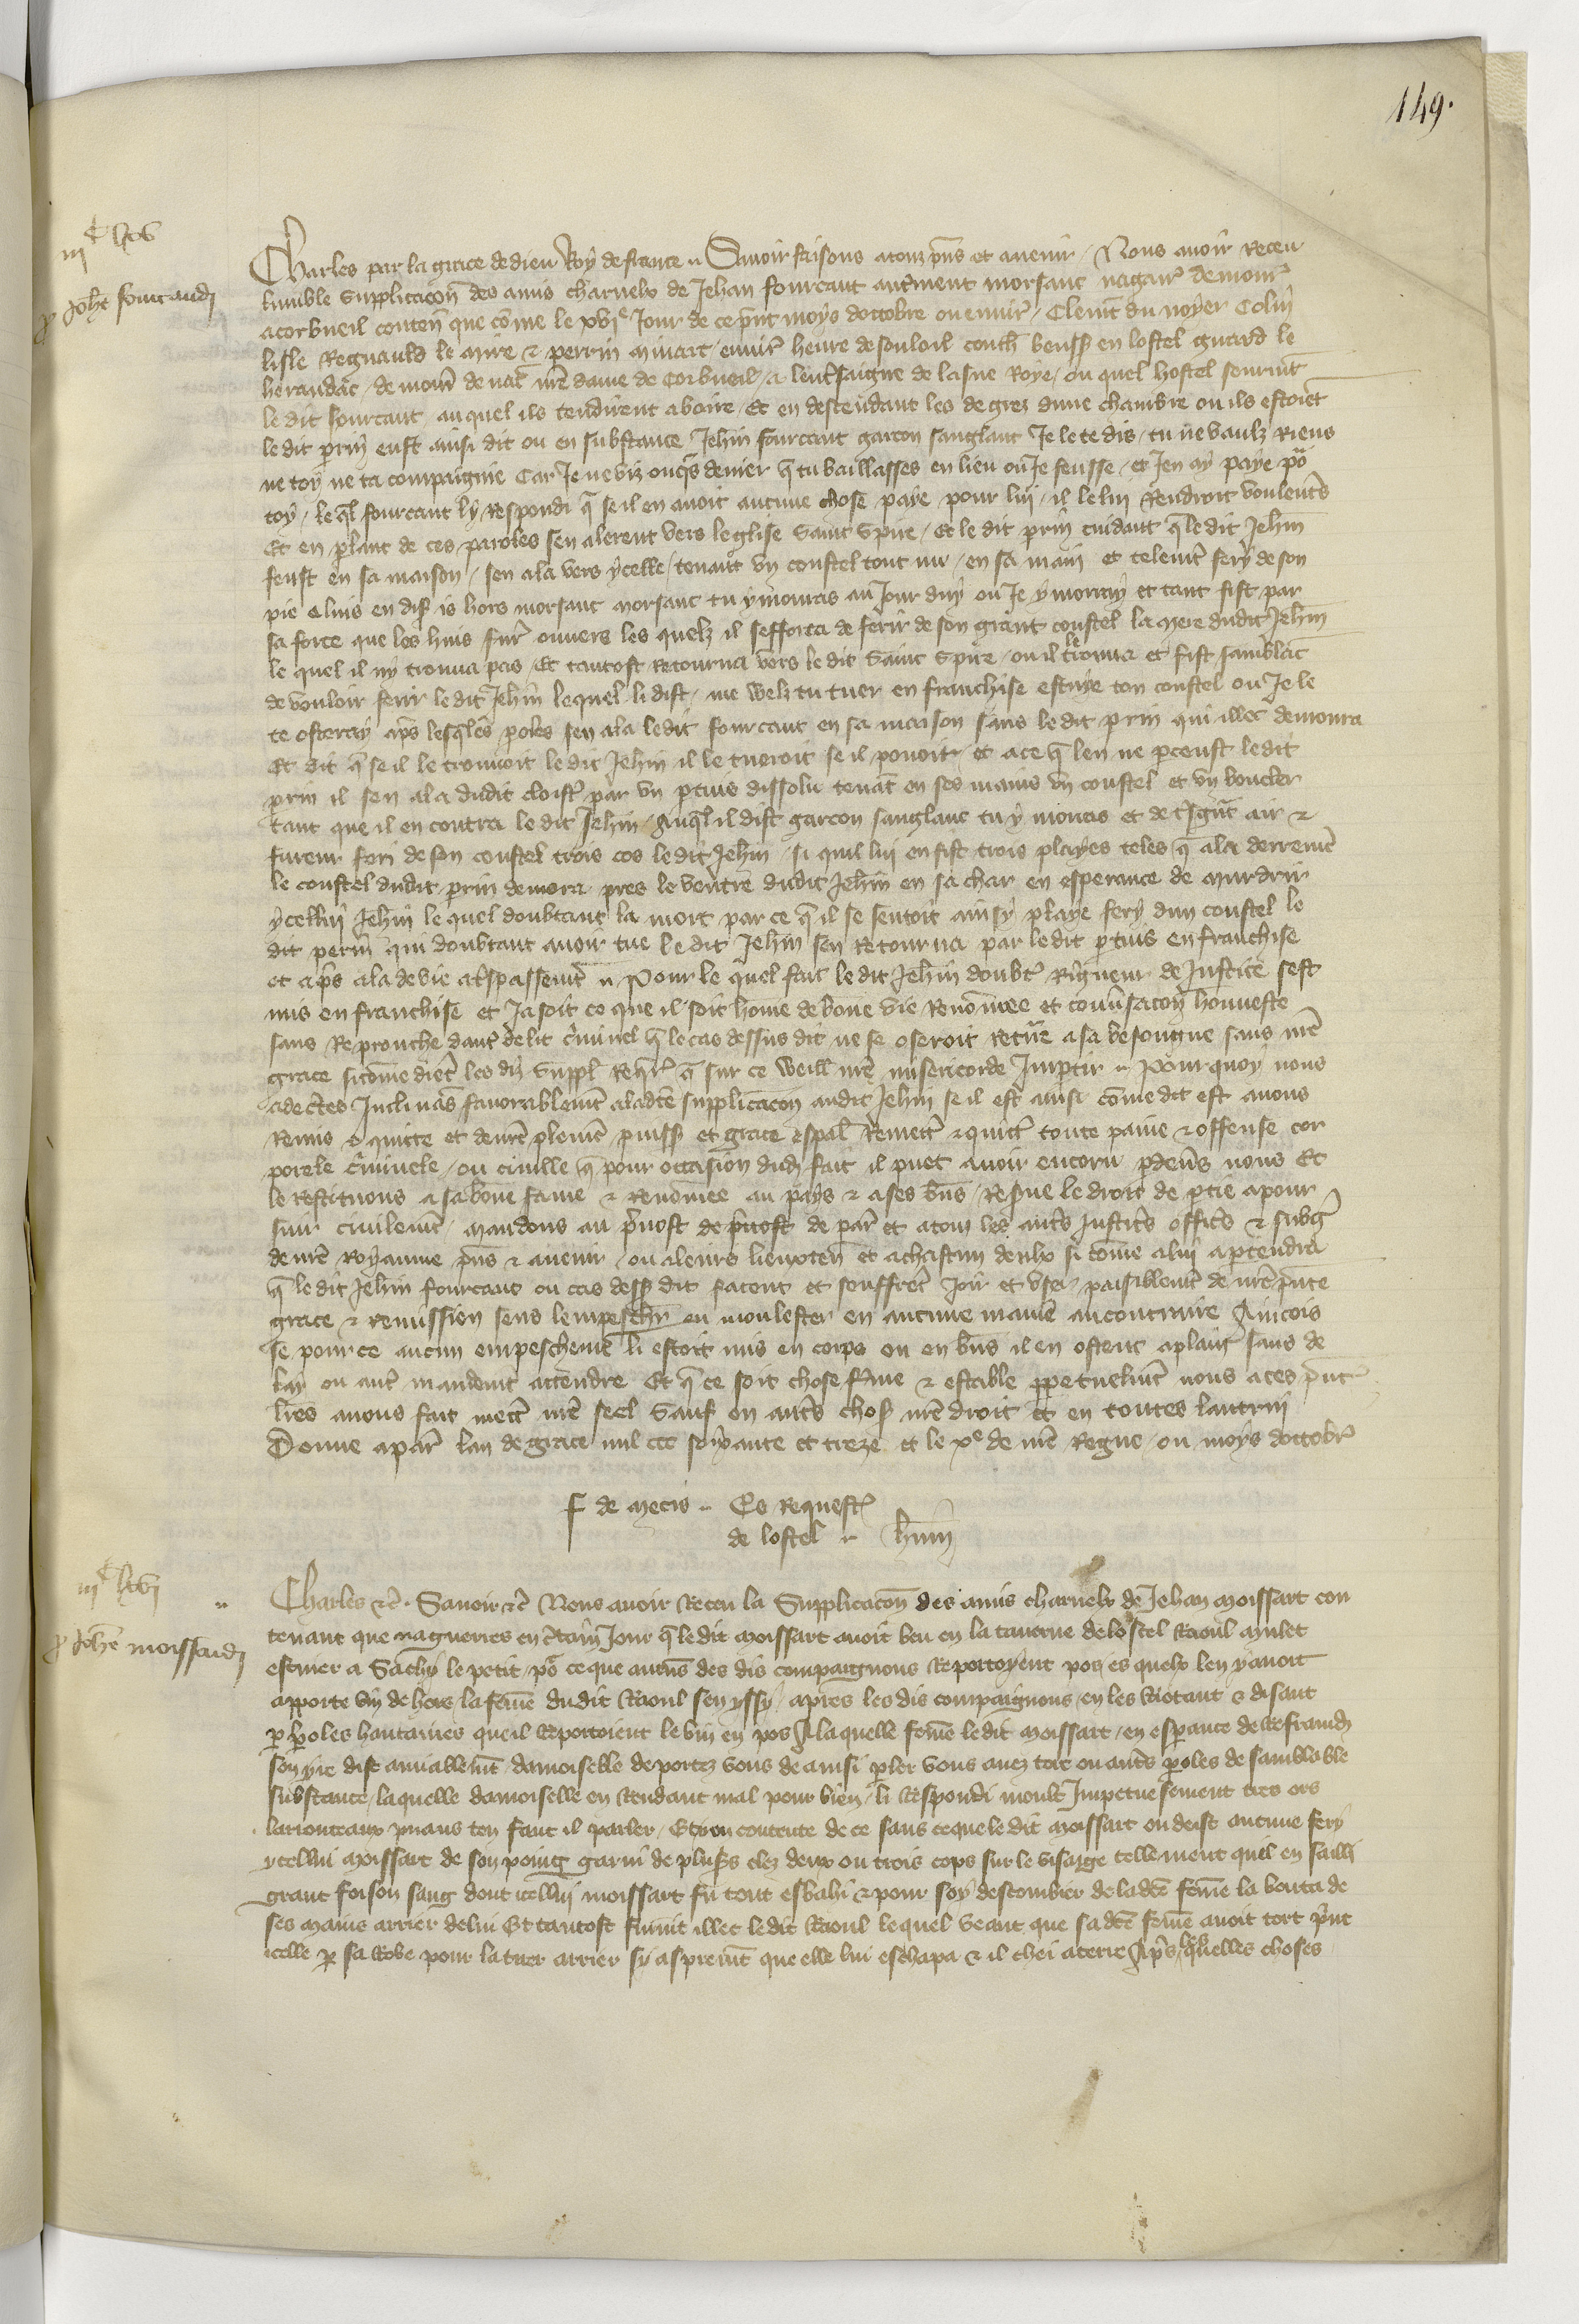 149.
iiiᶜ lxv
Charles par la grace de dieu Roy de france .. Savoir faisons a touz pñs et avenir / Nous avoir Receu
lumble Supplicacoñ des amis charnelx de Jehan fourcaut autrement morsant nagair̃ demour̃
p Joh̃e fourcaudi
acorbueil conteñ que cõme le xviᵉ Jour de ce p̃nt moys doctobre ou envir̃ / Clemẽt du noyer Colin
lisle Regnauld le mire & perrin minart / envir̃ heure de souloil couch̃ beuss̃ en lostel guard le
heraudat / de mour̃ devãt nr̃e dame de Corbueil / a lent̃saigne de lasne Roye / ou quel hostel seurvĩt
le dit fourcaut / au quel ils tendirent aboire / Et en descendant les degrez dune chambre ou ils estoiẽt
le dit p̃rin eust ainsi dit ou en substance / Jehin fourcaut garcon sanglant Je le te dis / tu ne vaulz Riens
ne toy ne ta compaignie Car Je ne viz onq̃s denier q̃ tu baillasses en lieu ou Je feusse / et Jen ay paye po᷑
toy / le q̃l fourcaut ly Respondi q̃ se il en avoit aucune chose paye pour lui / il le lui Rendroit voulent̃s
Et en p̃lant de ces paroles sen alerent vers leglise Saint Spire / Et le dit p̃rin cuidant q̃ le dit Jehin
feust en sa maison / sen ala vers ycelle / tenant vn coustel tout nu / en sa main et telemt̃ fery de son
pie a luis en disˢ is hors morsant morsant tu y mourras au Jour duy ou Je y morray et tant fist par
sa force que les huis fur̃ ouvers les quelz il sefforca de ferir de son grant coustel la mere dudit Jehin
le quel il ny trouva pas / Et tantost Retourna vers le dit Saint Spire / ou il le trouva et fist samblãt
de vouloir ferir le dit Jehin lequel li dist / me welz tu tuer en franchise estuye ton coustel ou Je le
te osteray ap̃s lesq̃les p̃oles sen ala ledit fourcaut en sa maison sans le dit p̃rin qui illec demoura
Et dit q̃ se il le trouvoit le dit Jehin il le tueroit se il pouoit / et a ce q̃ len ne p̃ceust ledit
p̃rin il sen ala dudit cloist̃ par vn p̃tuis dissolu tenãt en ses mains vn coustel et vn boucler
tant que il en contra le dit Jehin / Auq̃l il dist garcon sanglant tu y mourras et de t̃sgr̃t air &
fureur feri de son coustel trois cos le dit Jehin / si quil lui en fist trois playes teles q̃ a la derremẽt
le coustel dudit p̃rin demora pres le ventre dudit Jehin en sa char en esperance de murdrir
ycellui Jehin le quel doubtant la mort par ce q̃ il se sentoit ainsy playe fery dun coustel le
dit perrin qui doubtant avoir tue le dit Jehin sen Retourna par ledit p̃tuis en franchise
et ap̃s ala de vie a t̃spassemẽt .. Pour le quel fait le dit Jehin doubt̃ Rigueur de Justice sest
mis en franchise et Ja soit ce que il soit hõme de bõne vie Renõmee et conṽsacoñ honneste
sans Reprouche daut̃ delit c̃minel q̃ le cas dessus dit ne se oseroit Ret̃re a sa besongne sans nr̃e
grace sicõme dient les diz Suppl̃ Req̃r̃ q̃ sur ce weill nr̃e misericorde Imp̃tir .. Pour quoy nous
adectes Inclinãs favorablemẽt a ladicte supplicacoñ audit Jehin se il est ainsi cõme dit est avons
Remis & quicte et de nr̃e plaine puiss̃ et grace esp̃al Remett̃ & quict̃ toute paine & offense cor
porele c̃minele / ou civille q̃ pour occasion dudˢ fait il puet avoir encoru p̃devãs nous Et
le Restituons a sa bõne fame & Renõmee au pays & a ses bñs / Res̃ve le droit de p̃tie a pour
suir civilemẽt / Mandons au p̃vost de p̃vost de par̃ et a touz les aut̃s Justic̃s offic̃s & subg̃
de nr̃e Royaume p̃ns & avenir / ou a leurs lieuxteñ et a chascun deulx si cõme a lui ap̃tiendra
q̃ le dit Jehin fourcaut ou cas dessˢ dit facent et seuffrẽt Joir et vser / paisiblemẽt de nr̃e p̃nte
grace & remission sens lempescher ou moulester en aucune maniẽ au contraire Aincois
se pour ce aucun empeschemẽt li estoit mis en corps ou en bñs il en ostent a plain sans de
lay ou aut̃ mandemẽt attendre Et q̃ ce soit chose ferme & estable p̃petuelmẽt nous a ces p̃nt̃
lr̃es avons fait mett̃ nr̃e seel Sauf en aut̃s chosˢ nr̃e droit & en toutes lautrui
Donne a par̃ lan de grace mil ccc soixante et treze et le xᵉ de nr̃e Regne / ou moys doctobr̃
f de mecis .. Es Request̃
de lostel ..
iiiᶜ lxvi
Charles &c̃ . Savoir &c̃ Nous avoir Receu la Supplicacoñ des amis charnelx de Jehan moissart con
p Joh̃e moissardi
tenant que nagueires en c̃tain Jour q̃ le dit moissart avoit beu en la taverne de lostel Raoul mulet
escuier a Sachy le petit / po᷑ ce que aucũs des dis compaignons Reportoyent pos / es quelx len y avoit
apporte vin dehors / la fem̃e dudit Raoul sen yssy / apres les dis compaignons / en les Riotant & disant
p p̃oles hautaines que il Reportoient le vin en pos A laquelle fem̃e ledit moissart / en esp̃ance de Refraindˢ
son yre dist amiablemẽt / damoiselle deportez vous de ainsi p̃ler vous avez tort ou aut̃s p̃oles de samblable
substance / laquelle damoiselle en Rendant mal pour bien / li Respondi moult Impetueusement tres ors
larionteaux puans ten faut il parler / Et non contente de ce sans ce que le dit moissart ou deist aucune fery
ycellui moissart de son poing garni de plus̃s clez deux ou trois cops sur le visaige tellement quil en sailli
grant foison sang dont icellui moissart fu tout esbahi & pour soy descombrer de ladicte fem̃e la bouta de
ses mains arrier de lui Et tantost survint illec ledit Raoul lequel veant que sa dicte fem̃e avoit tort p̃nt
icelle p sa Robe pour la tirer arrier sy asprement que elle lui eschapa & il chei a terre Ap̃s les quelles choses